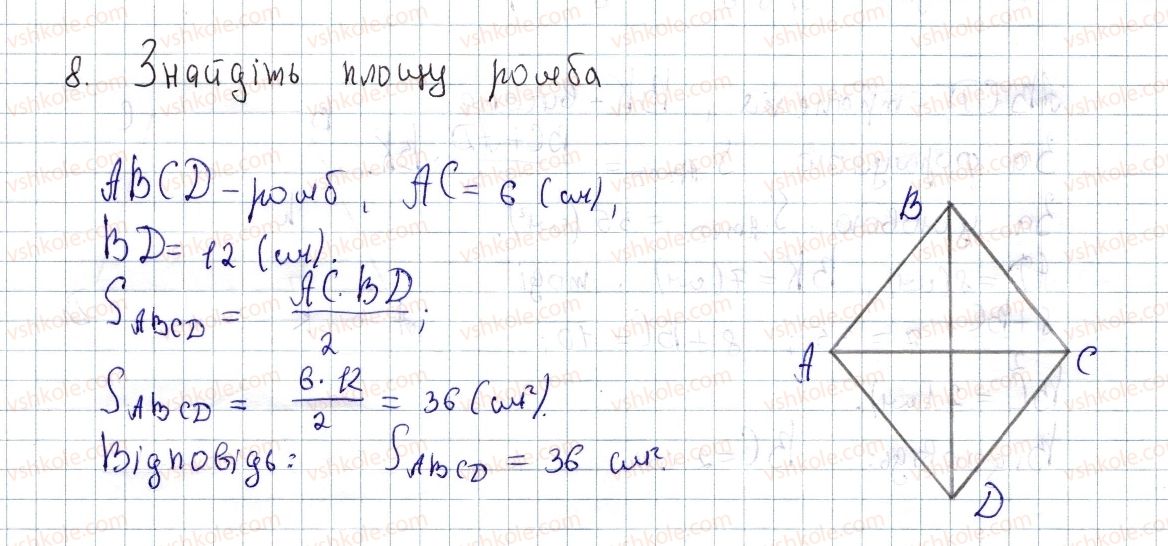 8. Знайдіть площу ромба
ABCD – ромб; AC = 6 (см),
BD = 12 (см).
S ABCD = AC · BD / 2 ;
S ABCD = 6 · 12 / 2 = 36 (см²).
Відповідь: S ABCD = 36 см².
B
A
C
D